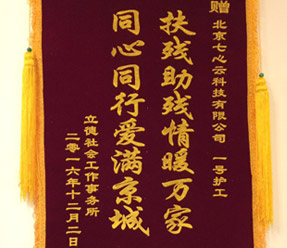 赠
北京七心云科技有限公司 一号护工
扶残助残情暖万家
同心同行爱满京城
立德社会工作事务所
二零一六年十二月二日